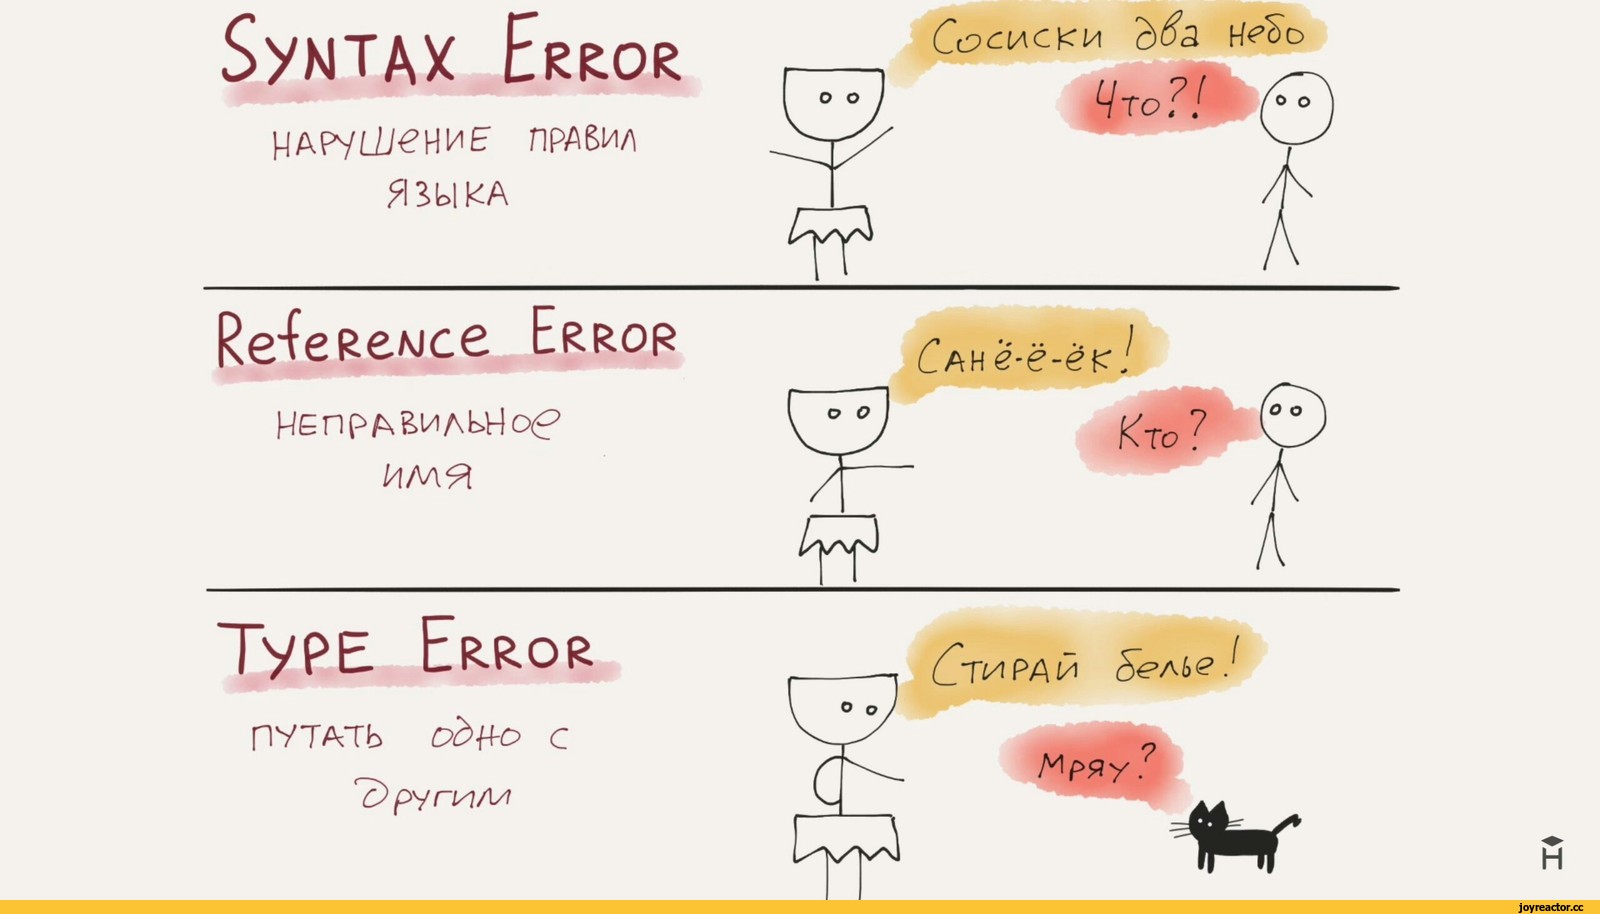 Syntax Error
нарушение правил
языка
Сосиски два небо
Что?!
Reference Error
неправильное
имя
Санё-ё-ёк!
Кто?
Type Error
путать одно с
другим
Стирай белье!
Мряу?
H
joyreactor.cc